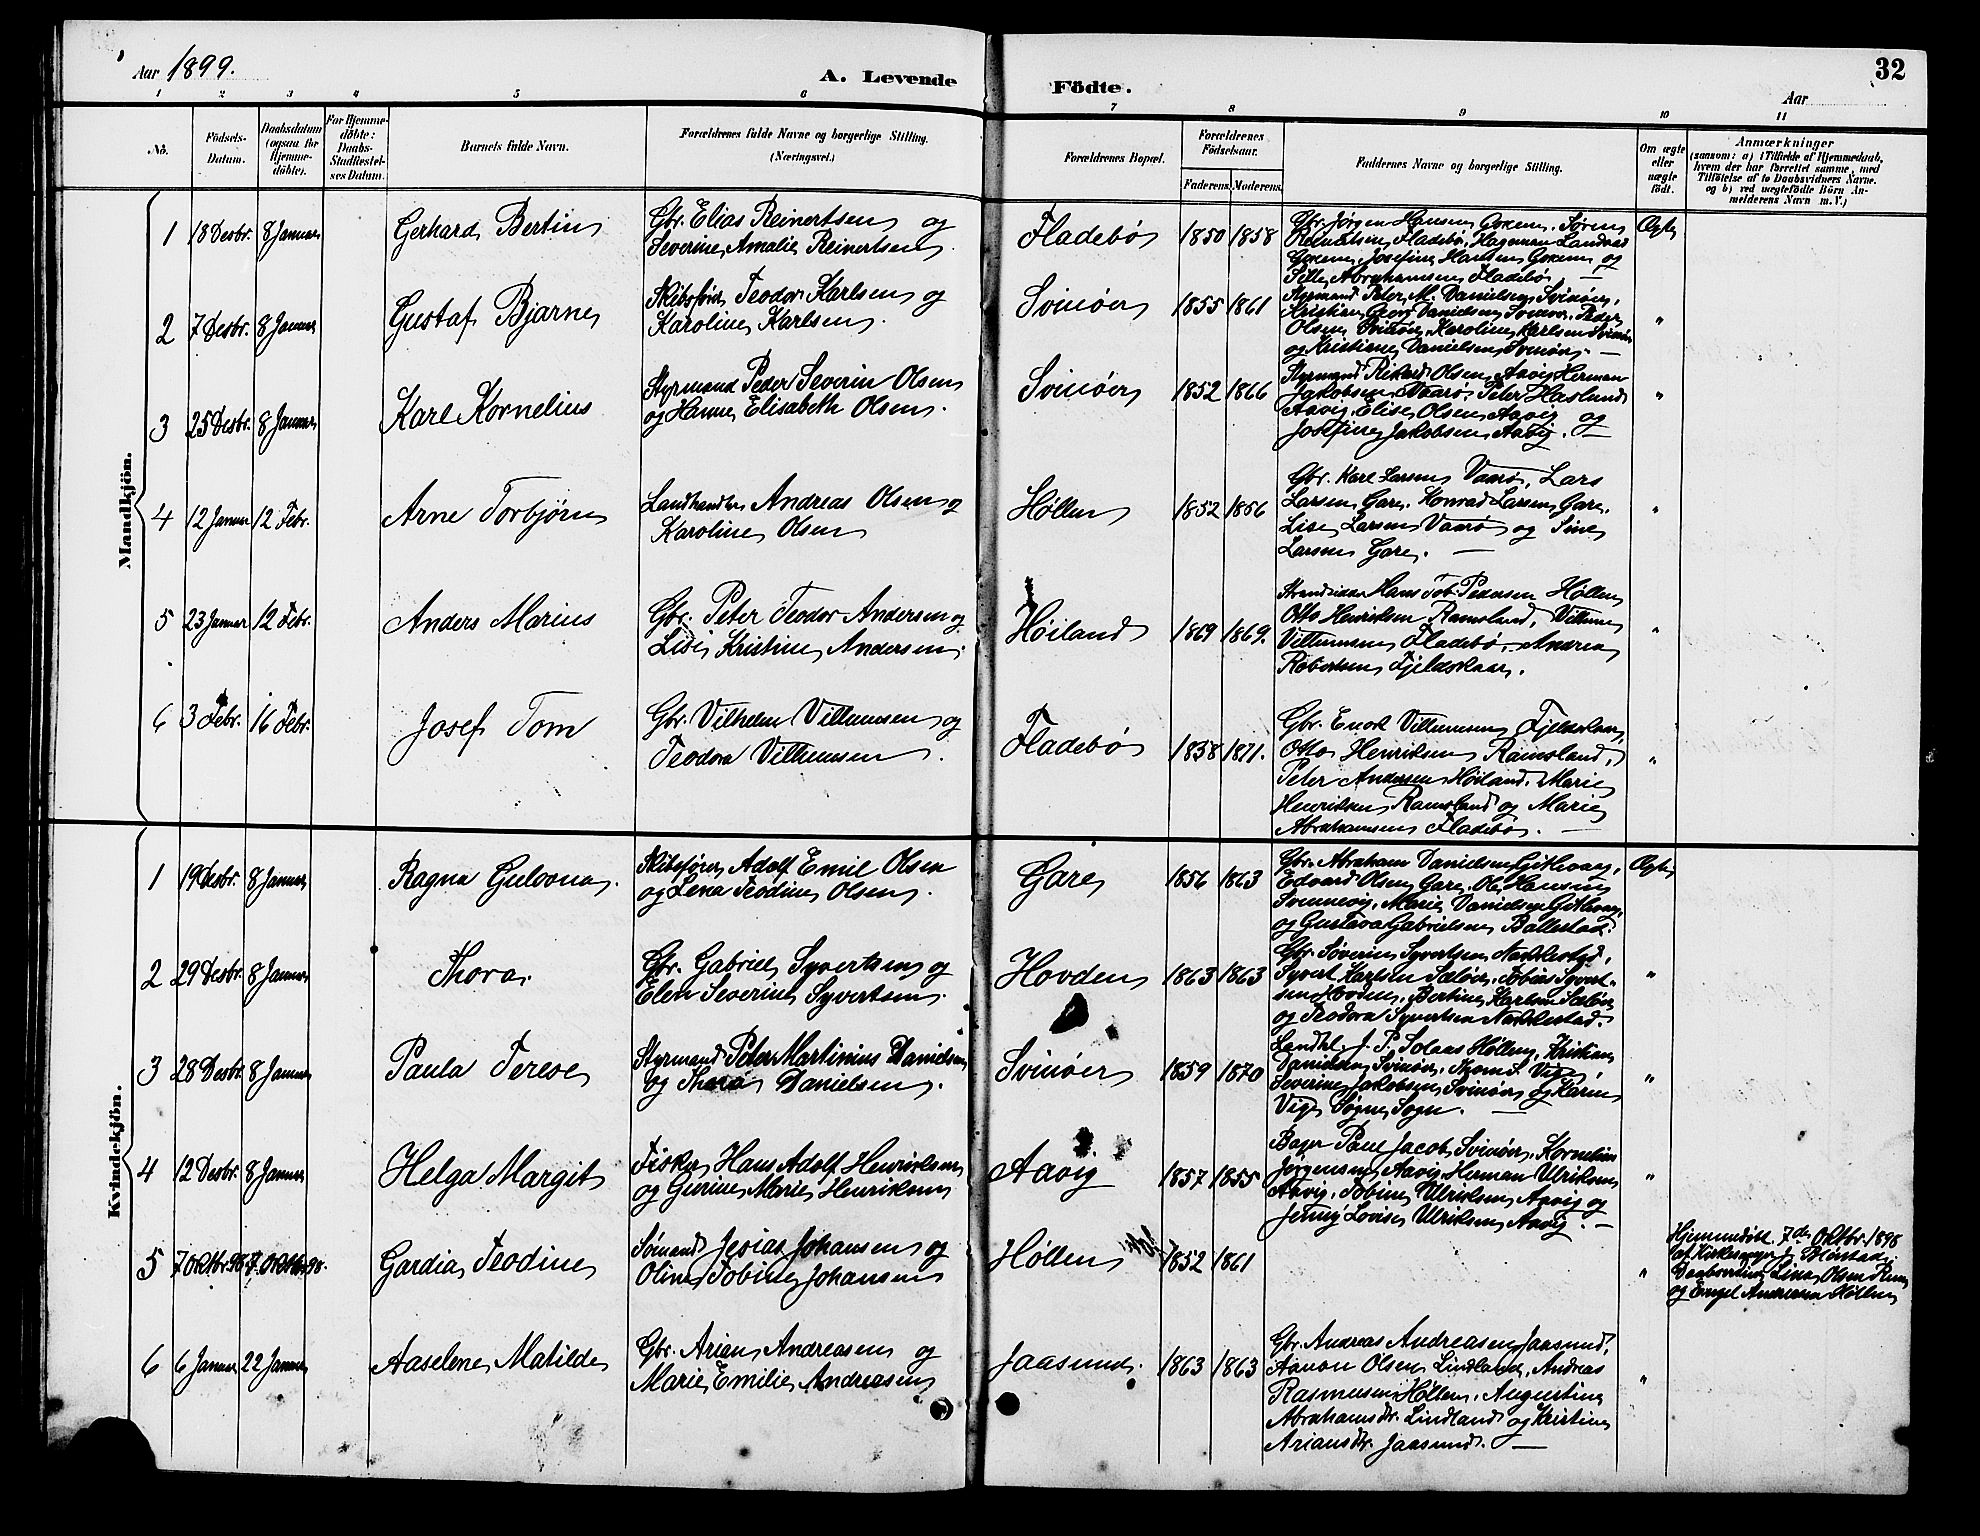 Aar 1899.
A. Levende Födte.
32
Aar
1 2 3 4 5 6 7 8 9 10 11
No.
Födsels-
Datum.
Daabsdatum
(ogsaa for
Hjemme-
döbte).
For Hjemme-
döbte:
Daabs-
Stadfæstel-
ses Datum.
Barnets fulde Navn.
Forældrenes fulde Navne og borgerlige Stilling.
(Næringsvei.)
Forældrenes Bopæl.
Forældrenes
Födselsaar.
Faderens. Moderens.
Faddernes Navne og borgerlige Stilling.
Om ægte
eller
uægte
født.
Anmærkninger
(saasom: a) i Tilfælde af Hjemmedaab,
hvem der har forrettet samme, med
Tilföielse af to Daabsvidners Navne,
og b) ved uægtefödte Börn An-
melderens Navn m. V.)
Mandkjön.
1 18 Desbr. 8 Januar Gerhard Bertin
Gbr. Elias Reinertsen og
Severine Amalie Reinertsen.
Fladebø 1850 1858
Gbr. Jörgen Hansen Goksem, Sören
Reinertsen Fladebø, Hageman Landaas
Goksem, Josefine Hansen Goksem og
Sille Abrahamsen Fladebø. —
Ægte
2 7 Desbr. 8 Januar Gustaf Bjarne
Skibsförer Teodor Karlsen og
Karoline Karlsen.
Svinöer 1855 1861
Styrmand Peter M. Danielsen Svinöer,
Kristian Georg Danielsen Svinöer, Peder
Olsen Svinöer, Karoline Karlsen Svinöer
og Kristiane Danielsen Svinöer. —
"
3 25 Desbr. 8 Januar Karl Kornelius
Styrmand Peder Severin Olsen
og Hanne Elisabeth Olsen.
Svinöer 1852 1866
Styrmand Rikard Olsen Aavig, Herman
Jakobsen Vaarø, Peter Hasland
Aavig, Elise Olsen Aavig og
Josefine Jakobsen Aavig. —
"
4 12 Januar 12 Febr. Arne Torbjörn
Landhandler Andreas Olsen og
Karoline Olsen
Høllen 1852 1856
Gbr. Karl Larsen Vaarø, Lars
Larsen Gare, Konrad Larsen Gare,
Lise Larsen Vaarø og Sine
Larsen Gare. —
"
5 23 Januar 12 Febr. Anders Marius
Gbr. Peter Teodor Andersen og
Lise Kristine Andersen.
Høiland 1869 1869.
Strandsidder Hans Tob. Pedersen Høllen
Otto Henriksen Ramsland, Villum
Villumsen Fladebø, Andrea
Robertsen Fjeldskaar.
"
6 3 Febr. 16 Febr. Josef Tom
Gbr. Vilhelm Villumsen og
Teodora Villumsen.
Fladebø 1838 1871.
Gbr. Enok Villumsen Fjeldskaar,
Otto Henriksen Ramsland,
Peter Andersen Høiland, Marie
Henriksen Ramsland og Marie
Abrahamsen Fladebø. —
"
Kvindekjön.
1 19 Desbr. 8 Januar Ragna Gulovna.
Skibsförer Adolf Emil Olsen
og Lena Teodine Olsen.
Gare 1856 1863
Gbr. Abraham Danielsen Githvaag,
Edvard Olsen Gare, Ole Hansen
Svennevig, Marie Danielsen Githvaag,
og Gustava Gabrielsen Ballestad.
Ægte
2 29 Desbr. 8 Januar Thora.
Gbr. Gabriel Syvertsen og
Elen Severine Syvertsen.
Hovden 1863 1863
Gbr. Søverin Syvertsen Nakkestad,
Syvert Karlsen Sæløer, Tobias Syvert-
sen Hovden, Bertine Karlsen Sæløer
og Teodora Syvertsen Nakkestad.
"
3 28 Desbr. 8 Januar Paula Terese
Styrmand Peter Martinius Danielsen
og Thora Danielsen.
Svinöer 1859 1870
Landhl. J. P. Solaas Høllen, Kristian
Danielsen Svinöer, Thom S. Vige,
Severine Jakobsen Svinöer og Karin
Vige, Søgne Sogn. —
"
4 12 Desbr. 8 Januar Helga Margit
Fisker Hans Adolf Henriksen
og Gurine Marie Henriksen
Aavig 1857 1855
Bager Paul Jacob Svinöer, Kornelius
Jörgensen Aavig, Herman Ulriksen
Aavig, Tobine Ulriksen Aavig og
Jenny Lovise Ulriksen Aavig. —
"
5 7 Oktbr. 98 7. Oktbr. 98. Gardia Teodine
Sömand Jesias Johansen og
Oline Tobine Johansen
Høllen 1852 1861
"
Hjemmedöbt 7de Oktbr. 1898
af Kirkesanger J. Brinstad
Daabsvidner Lina Olsen
og Engel Andersen Høllen
6 6 Januar 22 Januar Aaselene Matilde
Gbr. Arian Andreasen og
Marie Emilie Andreasen
Jaasund. 1863 1863
Gbr. Andreas Andreasen Jaasund,
Aanon Olsen Lindland, Andreas
Rasmusen Høllen, Augustine
Abrahamsdr. Lindland og Kristine
Ariansdr. Jaasund. —
"